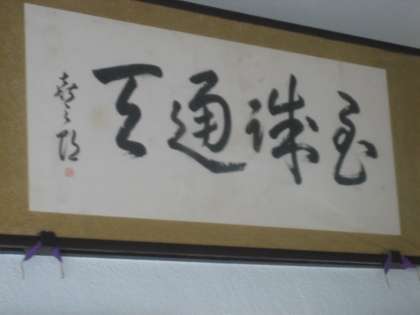 至誠通天